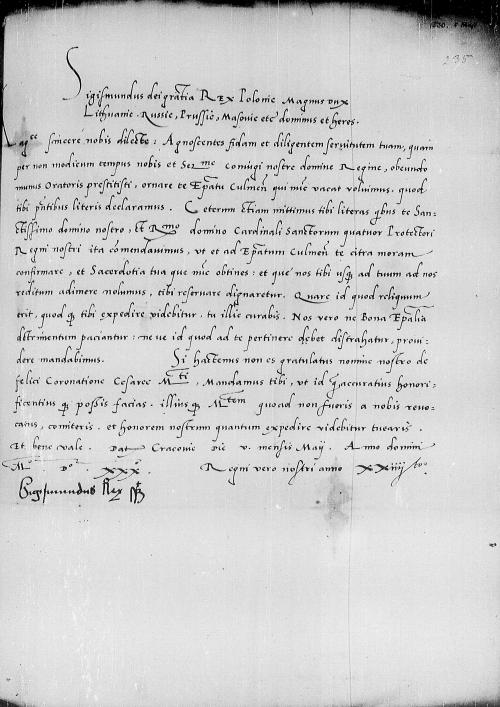 1530. 5 Maij
235
Sigismundus dei gratia Rex Polonie Magnus Dux
Lithuanie. Russie, Prussie, Masovie etc dominus et heres.
sincere nobis dilecte: Agnoscentes fidam et diligentem servitutem tuam, quam
per non modicum tempus nobis et Ser.me Coniugi nostre domine Regine, obeundo
munus Oratoris prestitisti, ornare te Epatu Culmen qui nunc vacat voluimus, quod
tibi pntibus literis declaramus. Ceterum etiam mittimus tibi literas qbus te San-
ctissimo domino nostro, et R.mo domino Cardinali Sanctorum quatuor Protectori
Regni nostri ita commendavimus, ut et ad Epatum Culmen te citra moram
confirmare, et Sacerdotia tua que nunc obtines: et que nos tibi usq ad tuum ad nos
reditum adimere nolumus, tibi reservare dignaretur. Quare id quod reliquum
erit, quod q tibi expedire videbitur. tu illic curabis. Nos vero ne Bona Epalia
detrimentum paciantur: neve id quod ad te pertinere debet distrahatur, provi-
dere mandabimus. Si hactenus non es gratulatus nomine nostro de
felici Coronatione Cesaree M.ti, Mandamus tibi, ut id q accuratius honori-
ficentius q possis facias. illius q M.tem quoad non fueris a nobis revo-
catus, comiteris. et honorem nostrum quantum expedire videbitur tuearis.
Et bene vale. Dat Cracovie Die v. mensis Maij. Anno domini
M.o D.o xxx.o Regni vero nostri anno xxiiij to.
Sigismundus Rex